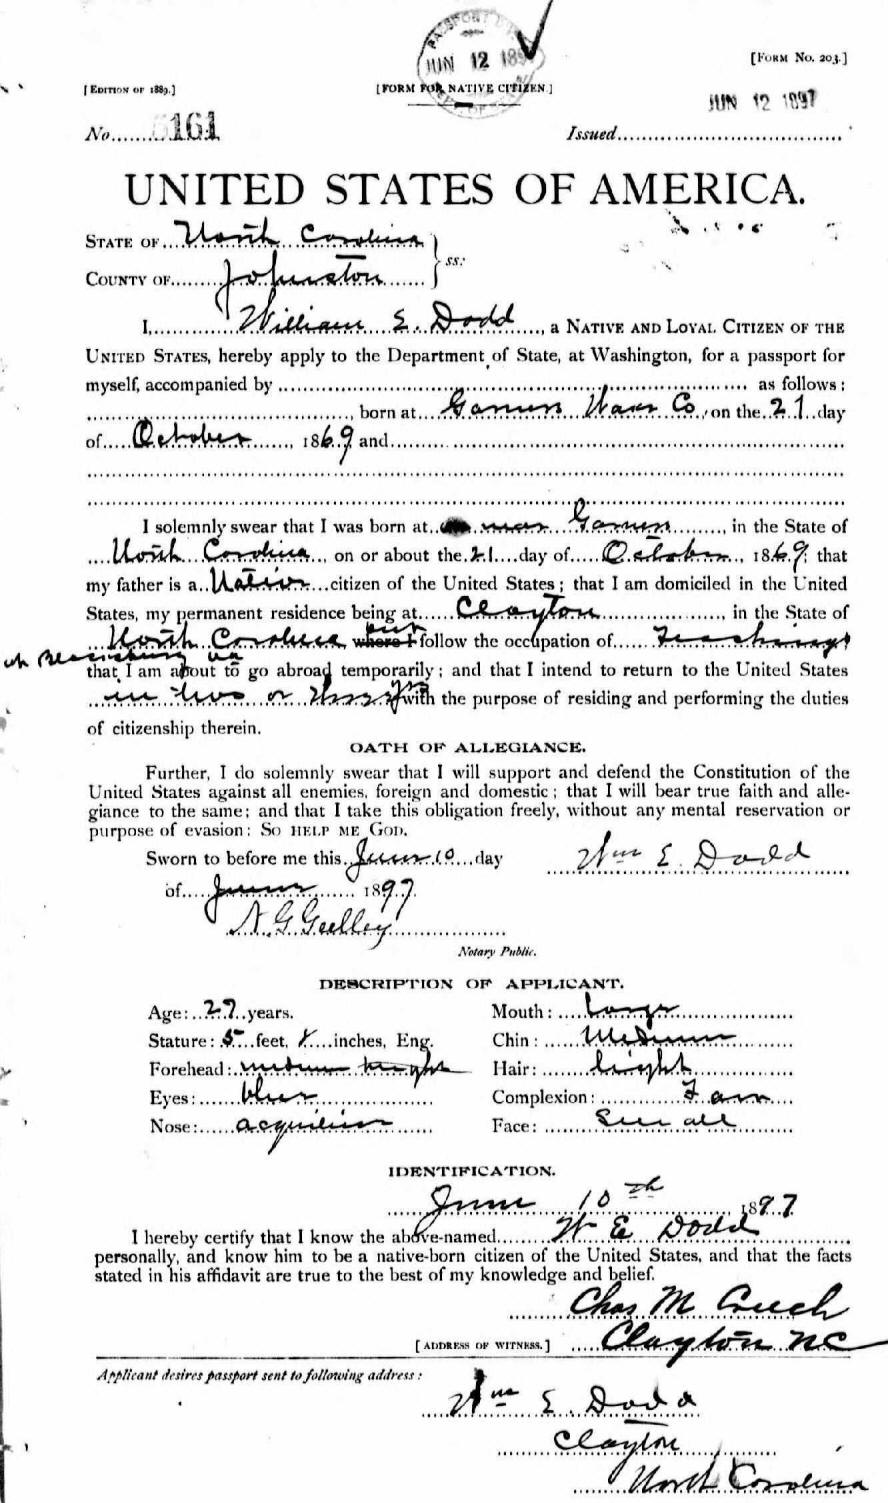 PASSPORT
JUN 12 1897
[FORM NO. 203.]
[EDITION OF 1889.]
[FORM FOR NATIVE CITIZEN.]
JUN 12 1897
No. 5161 Issued
UNITED STATES OF AMERICA.
STATE OF North Carolina
ss:
COUNTY OF Johnston
I, William E. Dodd, a NATIVE AND LOYAL CITIZEN OF THE
UNITED STATES, hereby apply to the Department of State, at Washington, for a passport for
myself, accompanied by as follows:
, born at Garners Wake Co, on the 21 day
of October, 1869 and
I solemnly swear that I was born at near Garners, in the State of
North Carolina, on or about the 21 day of October, 1869; that
my father is a Native citizen of the United States; that I am domiciled in the United
States, my permanent residence being at Clayton, in the State of
North Carolina where I but follow the occupation of Teaching
at Blacksburg Va
that I am about to go abroad temporarily; and that I intend to return to the United States
in two or three yrs with the purpose of residing and performing the duties
of citizenship therein.
OATH OF ALLEGIANCE.
Further, I do solemnly swear that I will support and defend the Constitution of the
United States against all enemies, foreign and domestic; that I will bear true faith and alle-
giance to the same; and that I take this obligation freely, without any mental reservation or
purpose of evasion: SO HELP ME GOD.
Sworn to before me this June 10 day
Wm E. Dodd
of June 1897.
N. G. Gulley
Notary Public.
DESCRIPTION OF APPLICANT.
Age: 27 years. Mouth: Large
Stature: 5 feet, 8 inches, Eng. Chin: Medium
Forehead: medium height Hair: light
Eyes: blue Complexion: Fair
Nose: acquiline Face: Small
IDENTIFICATION.
June 10th, 1897
I hereby certify that I know the above-named W E Dodd
personally, and know him to be a native-born citizen of the United States, and that the facts
stated in his affidavit are true to the best of my knowledge and belief.
Chas M Creech
[ADDRESS OF WITNESS.] Clayton NC
Applicant desires passport sent to following address:
Wm E. Dodd
Clayton
North Carolina